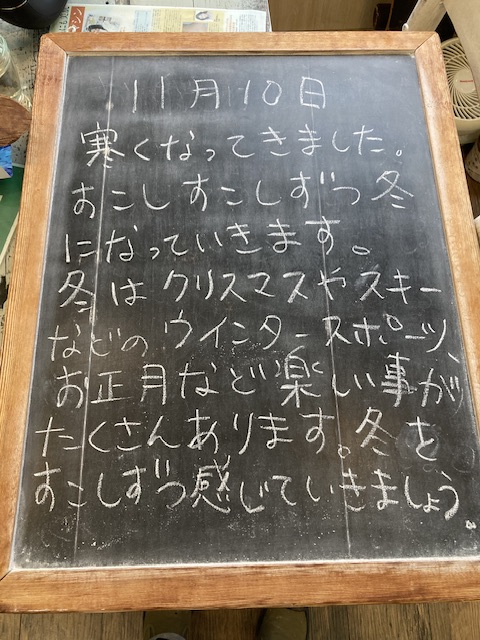 11月10日
寒くなってきました。
おこしすこしずつ冬
になっていきます。
冬はクリスマスやスキー
などのウインタースポーツ、
お正月など楽しい事が
たくさんあります。冬を
すこしずつ感じていきましょう。